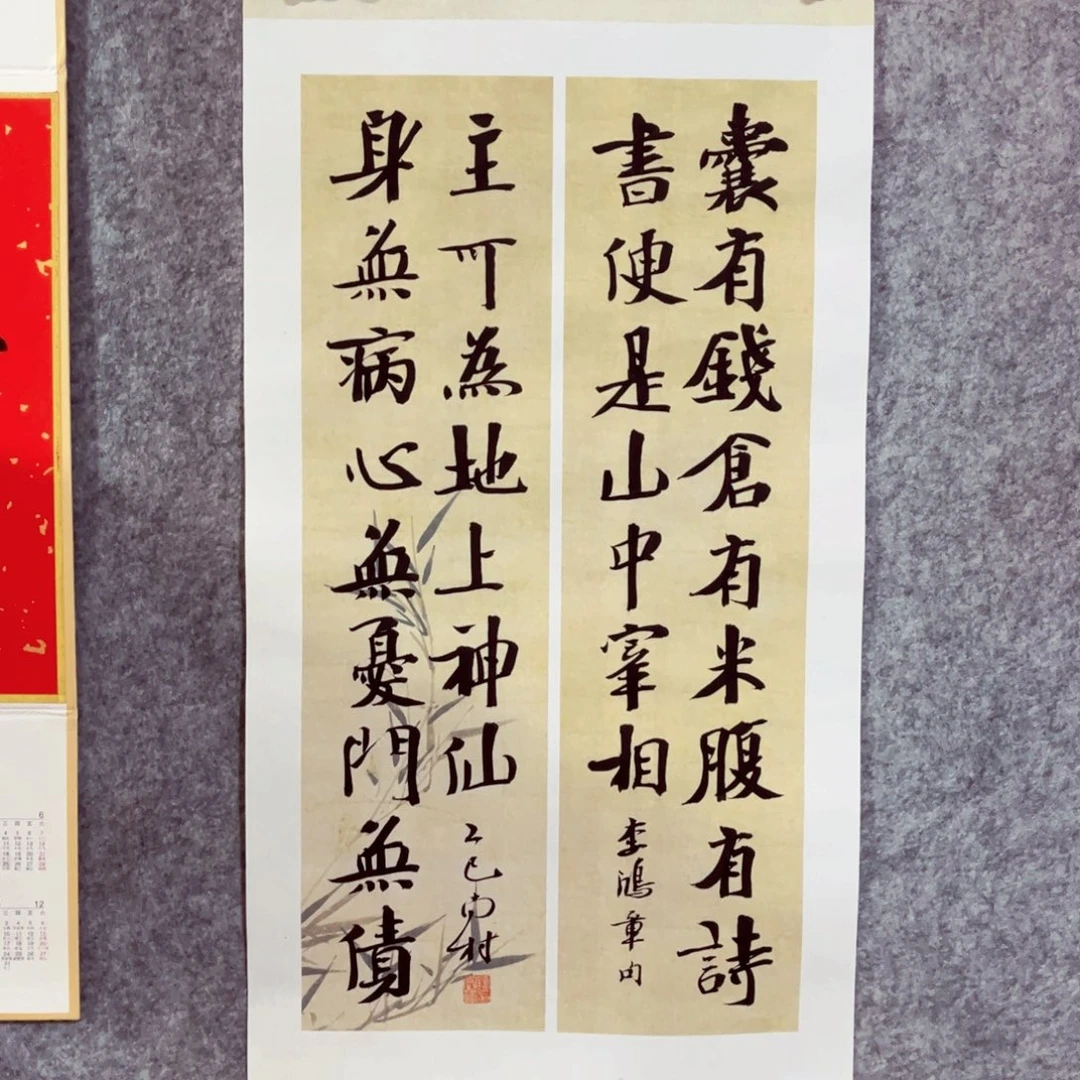 囊有錢倉有米腹有詩
書便是山中宰相
李鴻章句
身無病心無憂門無債
主可為地上神仙
乙巳南村
6
12